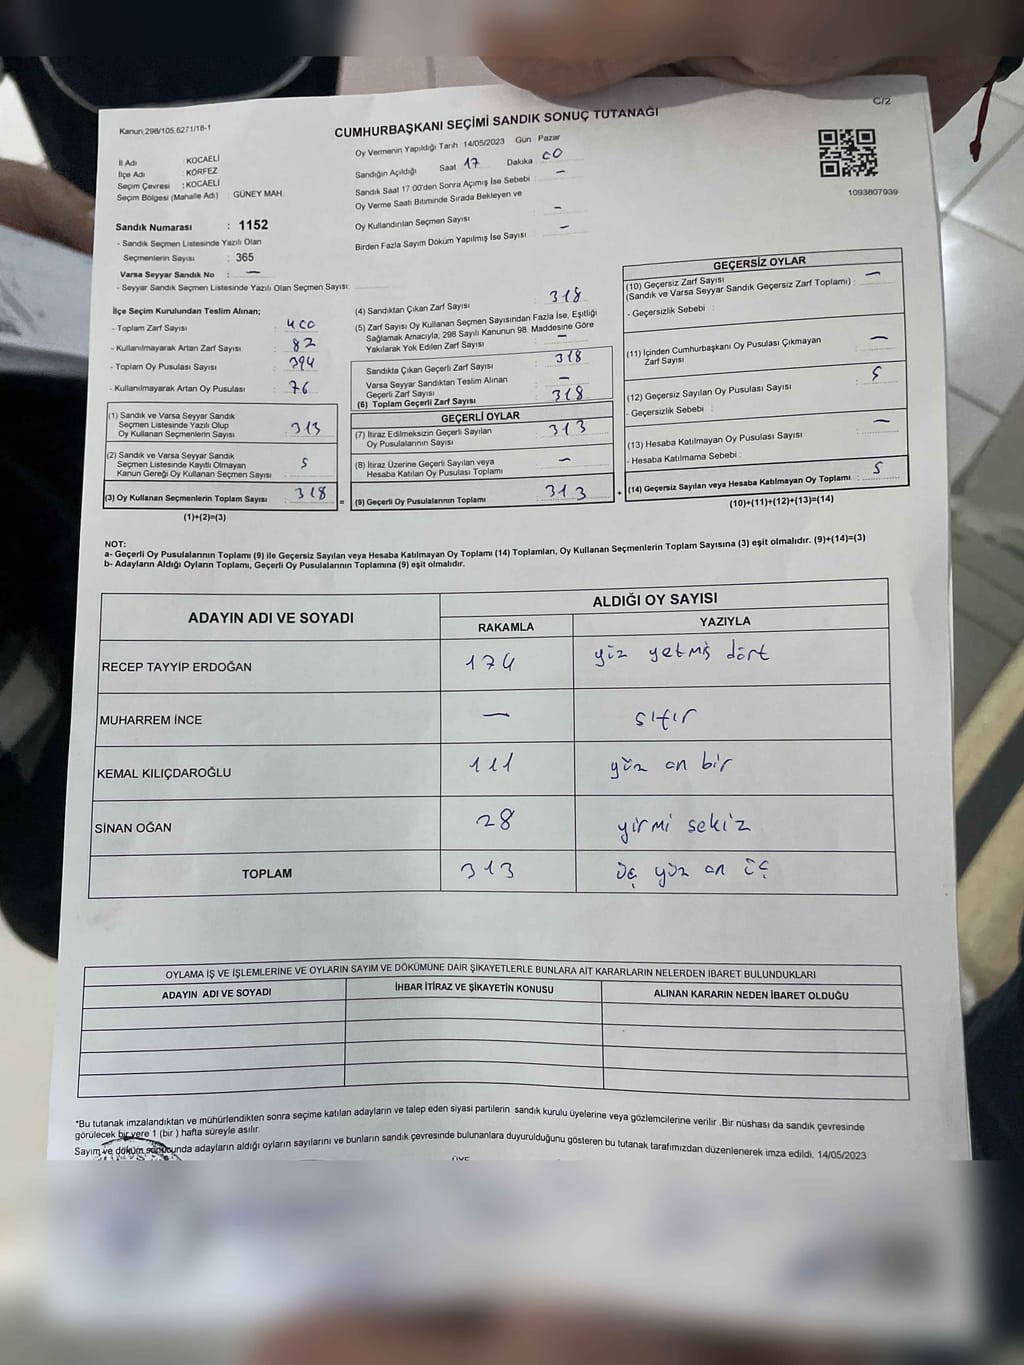 C/2
Kanun.298/105.6271/18-1
CUMHURBAŞKANI SEÇİMİ SANDIK SONUÇ TUTANAĞI
İl Adı : KOCAELİ
İlçe Adı : KÖRFEZ
Seçim Çevresi : KOCAELİ
Seçim Bölgesi (Mahalle Adı) : GÜNEY MAH
Oy Vermenin Yapıldığı Tarih 14/05/2023 Gün Pazar
Sandığın Açıldığı Saat 17 Dakika 00
Sandık Saat 17:00'den Sonra Açımış İse Sebebi : —
Oy Verme Saati Bitiminde Sırada Bekleyen ve
Oy Kullandırılan Seçmen Sayısı —
Birden Fazla Sayım Döküm Yapılmış İse Sayısı —
1093807939
Sandık Numarası : 1152
- Sandık Seçmen Listesinde Yazılı Olan
Seçmenlerin Sayısı : 365
Varsa Seyyar Sandık No : —
- Seyyar Sandık Seçmen Listesinde Yazılı Olan Seçmen Sayısı:
İlçe Seçim Kurulundan Teslim Alınan;
- Toplam Zarf Sayısı : 400
- Kullanılmayarak Artan Zarf Sayısı : 82
- Toplam Oy Pusulası Sayısı : 394
- Kullanılmayarak Artan Oy Pusulası : 76
(1) Sandık ve Varsa Seyyar Sandık
Seçmen Listesinde Yazılı Olup
Oy Kullanan Seçmenlerin Sayısı : 313
(2) Sandık ve Varsa Seyyar Sandık
Seçmen Listesinde Kayıtlı Olmayan
Kanun Gereği Oy Kullanan Seçmen Sayısı : 5
(3) Oy Kullanan Seçmenlerin Toplam Sayısı : 318 =
(1)+(2)=(3)
(4) Sandıktan Çıkan Zarf Sayısı 318
(5) Zarf Sayısı Oy Kullanan Seçmen Sayısından Fazla İse, Eşitliği
Sağlamak Amacıyla, 298 Sayılı Kanunun 98. Maddesine Göre
Yakılarak Yok Edilen Zarf Sayısı : —
Sandıkta Çıkan Geçerli Zarf Sayısı : 318
Varsa Seyyar Sandıktan Teslim Alınan
Geçerli Zarf Sayısı : —
(6) Toplam Geçerli Zarf Sayısı : 318
GEÇERLİ OYLAR
(7) İtiraz Edilmeksizin Geçerli Sayılan
Oy Pusulalarının Sayısı : 313
(8) İtiraz Üzerine Geçerli Sayılan veya
Hesaba Katılan Oy Pusulası Toplamı : —
(9) Geçerli Oy Pusulalarının Toplamı : 313 +
GEÇERSİZ OYLAR
(10) Geçersiz Zarf Sayısı
(Sandık ve Varsa Seyyar Sandık Geçersiz Zarf Toplamı) : —
- Geçersizlik Sebebi :
(11) İçinden Cumhurbaşkanı Oy Pusulası Çıkmayan
Zarf Sayısı : —
(12) Geçersiz Sayılan Oy Pusulası Sayısı : 5
- Geçersizlik Sebebi :
(13) Hesaba Katılmayan Oy Pusulası Sayısı : —
- Hesaba Katılmama Sebebi :
(14) Geçersiz Sayılan veya Hesaba Katılmayan Oy Toplamı : 5
(10)+(11)+(12)+(13)=(14)
NOT:
a- Geçerli Oy Pusulalarının Toplamı (9) ile Geçersiz Sayılan veya Hesaba Katılmayan Oy Toplamı (14) Toplamları, Oy Kullanan Seçmenlerin Toplam Sayısına (3) eşit olmalıdır. (9)+(14)=(3)
b- Adayların Aldığı Oyların Toplamı, Geçerli Oy Pusulalarının Toplamına (9) eşit olmalıdır.
ADAYIN ADI VE SOYADI
ALDIĞI OY SAYISI
RAKAMLA YAZIYLA
RECEP TAYYİP ERDOĞAN 174 yüz yetmiş dört
MUHARREM İNCE — sıfır
KEMAL KILIÇDAROĞLU 111 yüz on bir
SİNAN OĞAN 28 yirmi sekiz
TOPLAM 313 üç yüz on üç
OYLAMA İŞ VE İŞLEMLERİNE VE OYLARIN SAYIM VE DÖKÜMÜNE DAİR ŞİKAYETLERLE BUNLARA AİT KARARLARIN NELERDEN İBARET BULUNDUKLARI
ADAYIN ADI VE SOYADI İHBAR İTİRAZ VE ŞİKAYETİN KONUSU ALINAN KARARIN NEDEN İBARET OLDUĞU
*Bu tutanak imzalandıktan ve mühürlendikten sonra seçime katılan adayların ve talep eden siyasi partilerin sandık kurulu üyelerine veya gözlemcilerine verilir .Bir nüshası da sandık çevresinde
görülecek bir yere 1 (bir ) hafta süreyle asılır.
Sayım ve döküm sonucunda adayların aldığı oyların sayılarını ve bunların sandık çevresinde bulunanlara duyurulduğunu gösteren bu tutanak tarafımızdan düzenlenerek imza edildi. 14/05/2023